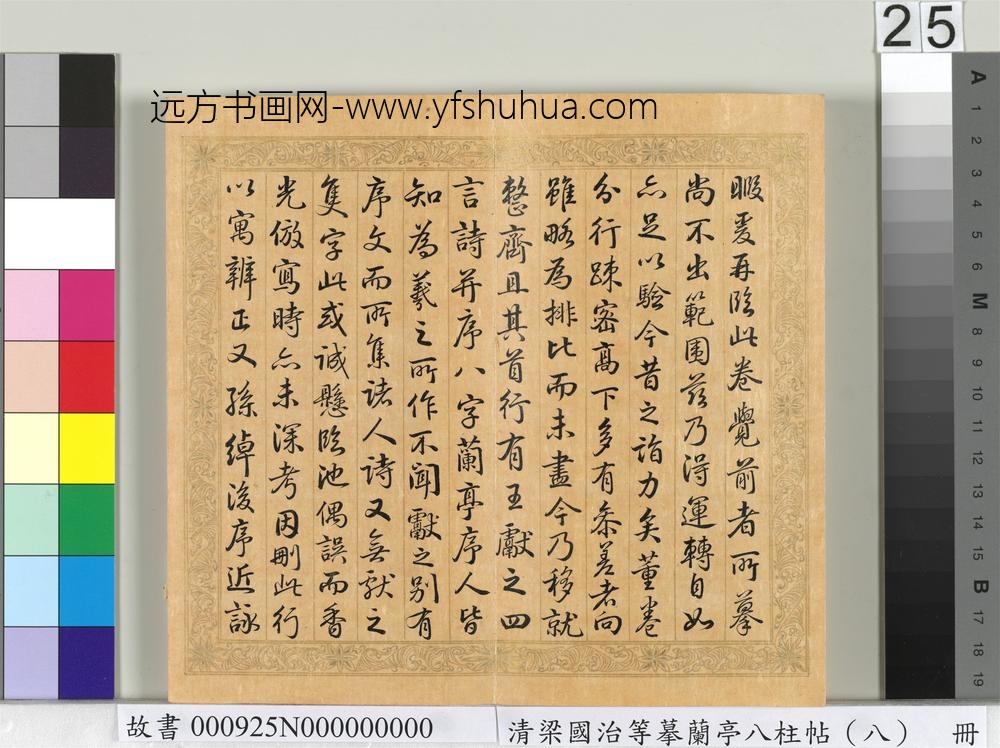 25
远方书画网-www.yfshuhua.com
暇爰再臨此卷覺前者所摹
尚不出範圍茲乃得運轉自如
亦足以驗今昔之詣力矣董卷
分行疎密髙下多有叅差者向
雖略為排比而未盡今乃移就
整齊且其首行有王獻之四
言詩并序八字蘭亭序人皆
知為羲之所作不聞獻之别有
序文而所集諸人詩又無獻之
隻字此或誠懸臨池偶誤而香
光倣寫時亦未深考因刪此行
以寓辨正又孫綽後序近詠
A 1 2 3 4 5 6 M 8 9 10 11 12 13 14 15 B 17 18 19
故書 000925N000000000
清梁國治等摹蘭亭八柱帖（八） 冊